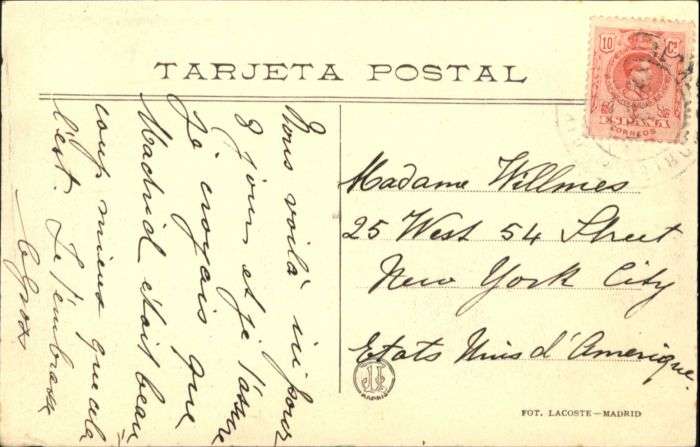 TARJETA POSTAL
10 Cs
CORREOS
Nous voilà ici pour
8 jours et je t'assure
Je croyais que
Madrid était beau
coup mieux que cela
l'est. Je t'embrasse
Madame Willmes
25 West 54 Street
New York City
Etats Unis d'Amerique.
MADRID
FOT. LACOSTE—MADRID